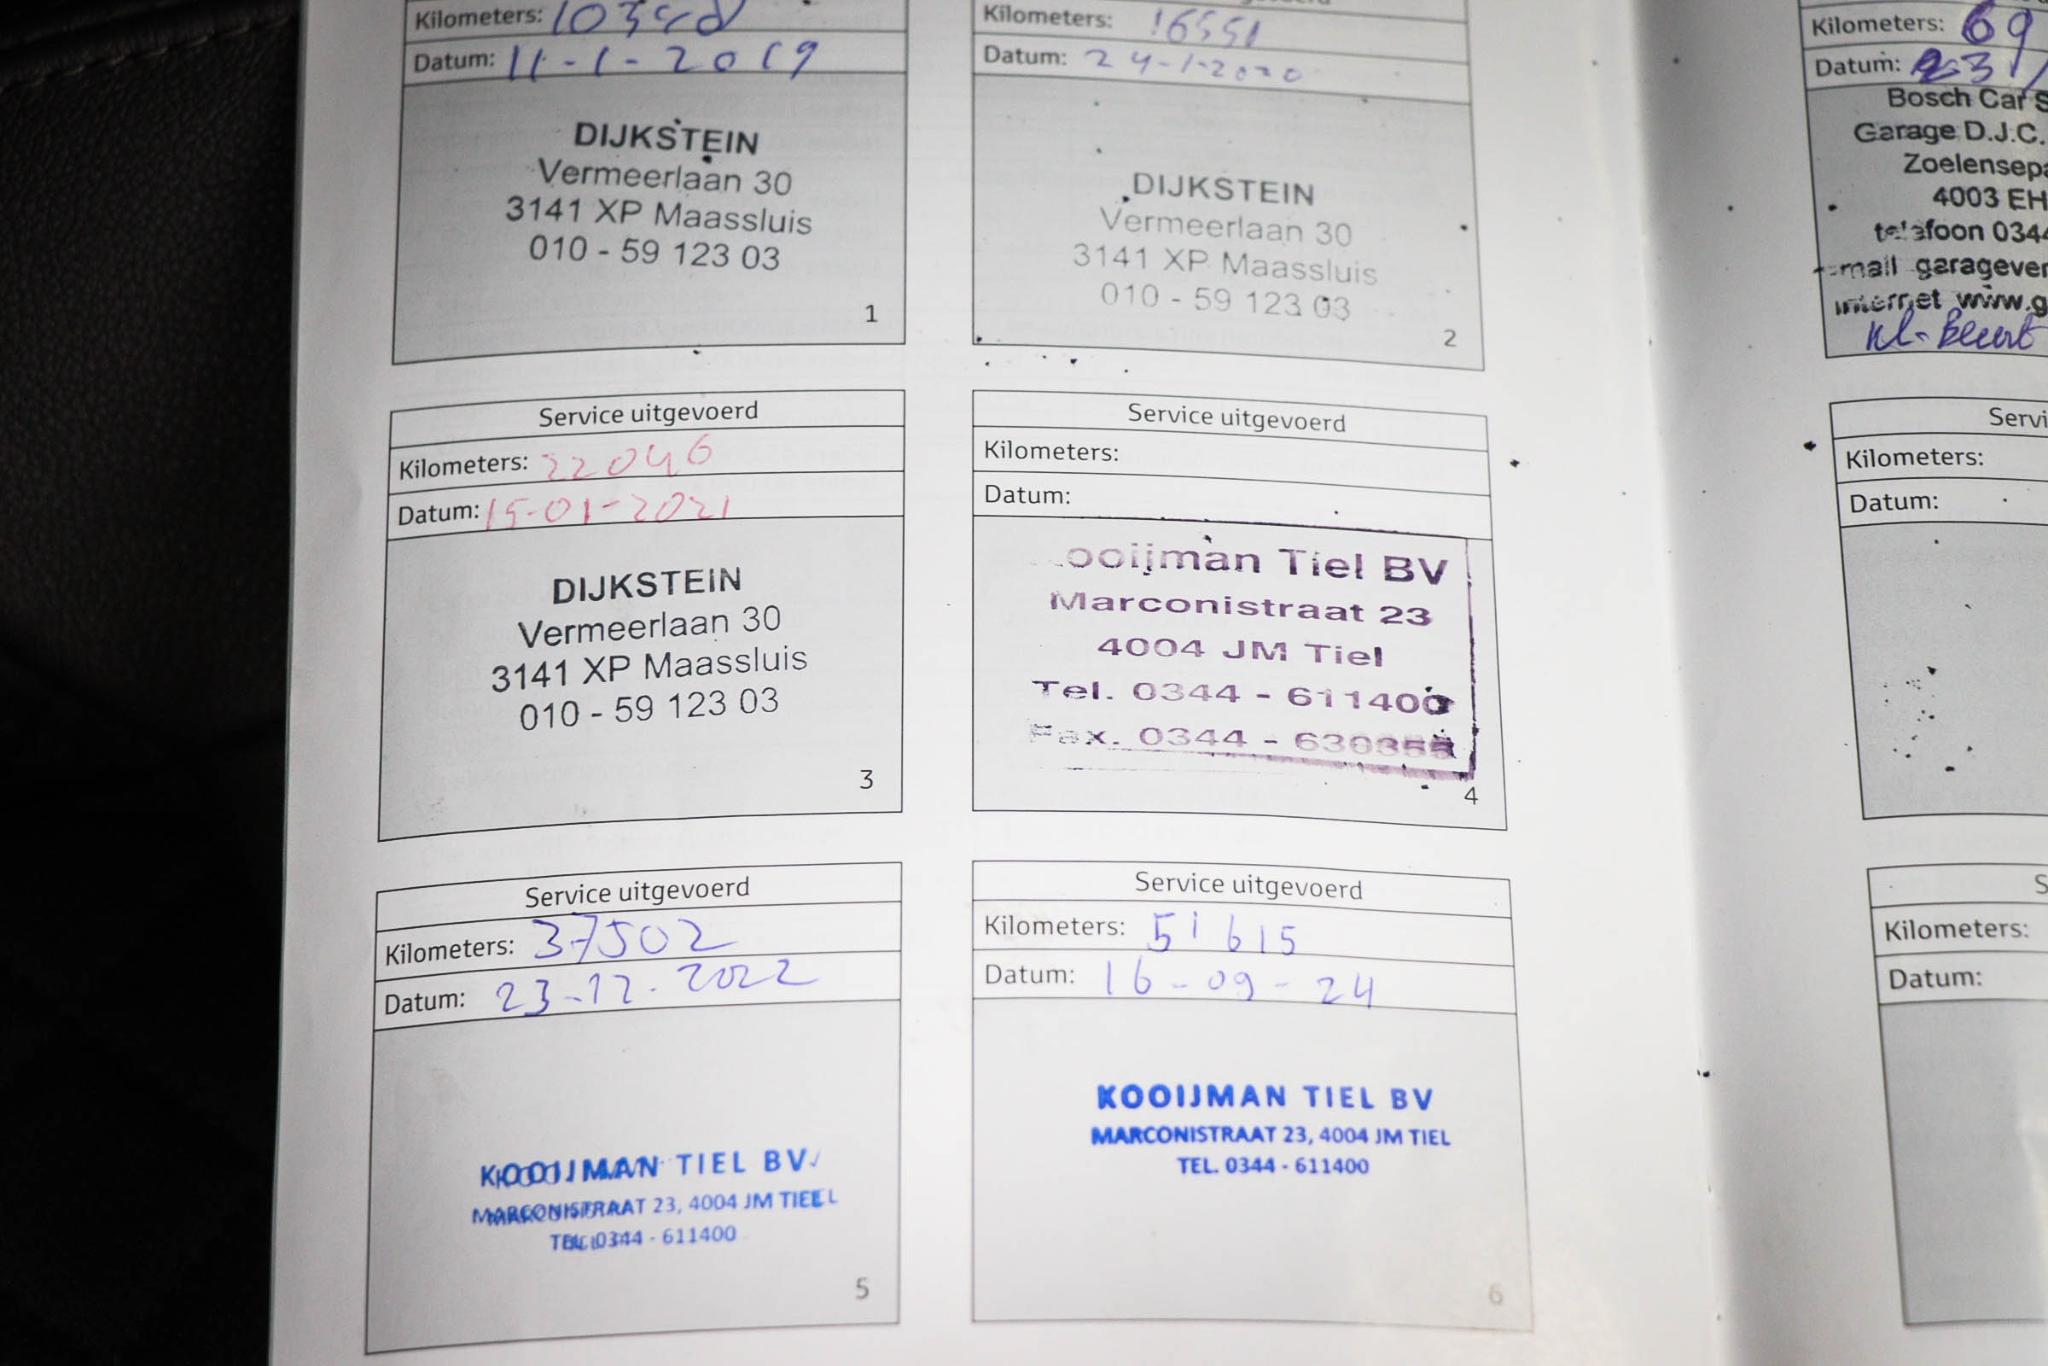 Kilometers:
Datum: 11-1-2019
DIJKSTEIN
Vermeerlaan 30
3141 XP Maassluis
010 - 59 123 03
1
Kilometers: 16551
Datum: 24-1-2020
DIJKSTEIN
Vermeerlaan 30
3141 XP Maassluis
010 - 59 123 03
2
Service uitgevoerd
Kilometers: 22046
Datum: 15-01-2021
DIJKSTEIN
Vermeerlaan 30
3141 XP Maassluis
010 - 59 123 03
3
Service uitgevoerd
Kilometers:
Datum:
ooijman Tiel BV
Marconistraat 23
4004 JM Tiel
Tel. 0344 - 611400
Fax. 0344 -
4
Service uitgevoerd
Kilometers: 37502
Datum: 23-12-2022
KOOIJMAN TIEL BV
MARCONISTRAAT 23, 4004 JM TIEL
TEL. 0344 - 611400
5
Service uitgevoerd
Kilometers: 51615
Datum: 16-09-24
KOOIJMAN TIEL BV
MARCONISTRAAT 23, 4004 JM TIEL
TEL. 0344 - 611400
6
Kilometers: 69
Datum:
Bosch Car S
Garage D.J.C.
Zoelensepa
4003 EH
telefoon 0344
e-mail garagever
internet www.g
Kl. Beurt
Servi
Kilometers:
Datum:
S
Kilometers:
Datum: